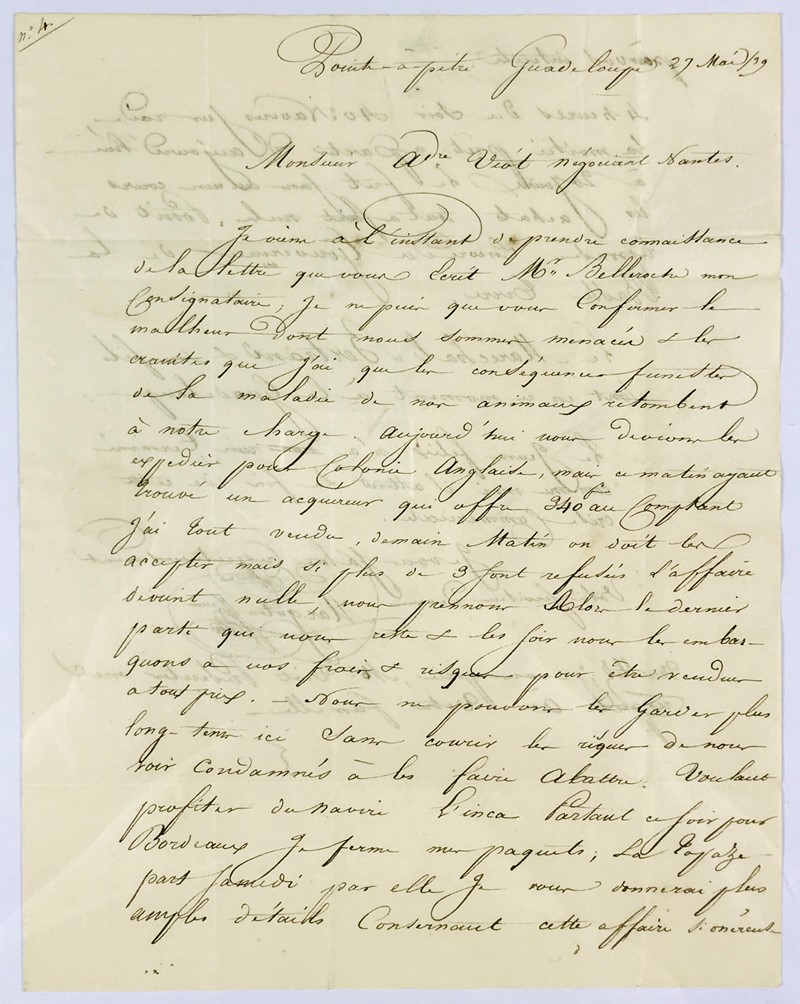 n.° 4.
Pointe-à-pitre Guadeloupe 27 Mai /39
Monsieur Adre Viot négociant Nantes.
Je viens à l'instant de prendre connaissance
de la lettre que vous Ecrit Mr. Belleroche mon
Consignataire, Je ne puis que vous Confirmer le
malheur dont nous sommes menacés & les
craintes que j'ai que les conséquences funestes
de la maladie de nos animaux retombent
à notre charge. aujourd'hui nous devions les
expedier pour Colonie Anglaise, mais ce matin ayant
trouvé un acquéreur qui offre 340 f au Comptant
j'ai tout vendu, demain Matin on doit les
accepter mais si plus de 3 sont refusés l'affaire
devient nulle, nous prennons Alors le dernier
parti qui nous reste & les soir nous les embar-
quons à vos frais & risques pour être vendus
a tout prix. — Nous ne pouvons les Garder plus
long-tems ici Sans courir les risques de nous
voir Condamnés à les faire Abattre. Voulant
profiter du navire L'inca Partant ce soir pour
Bordeaux Je ferme mes paquets; La Topaze
part Samedi par elle Je vous donnerai plus
amples détails Consernant cette affaire si onéreuse